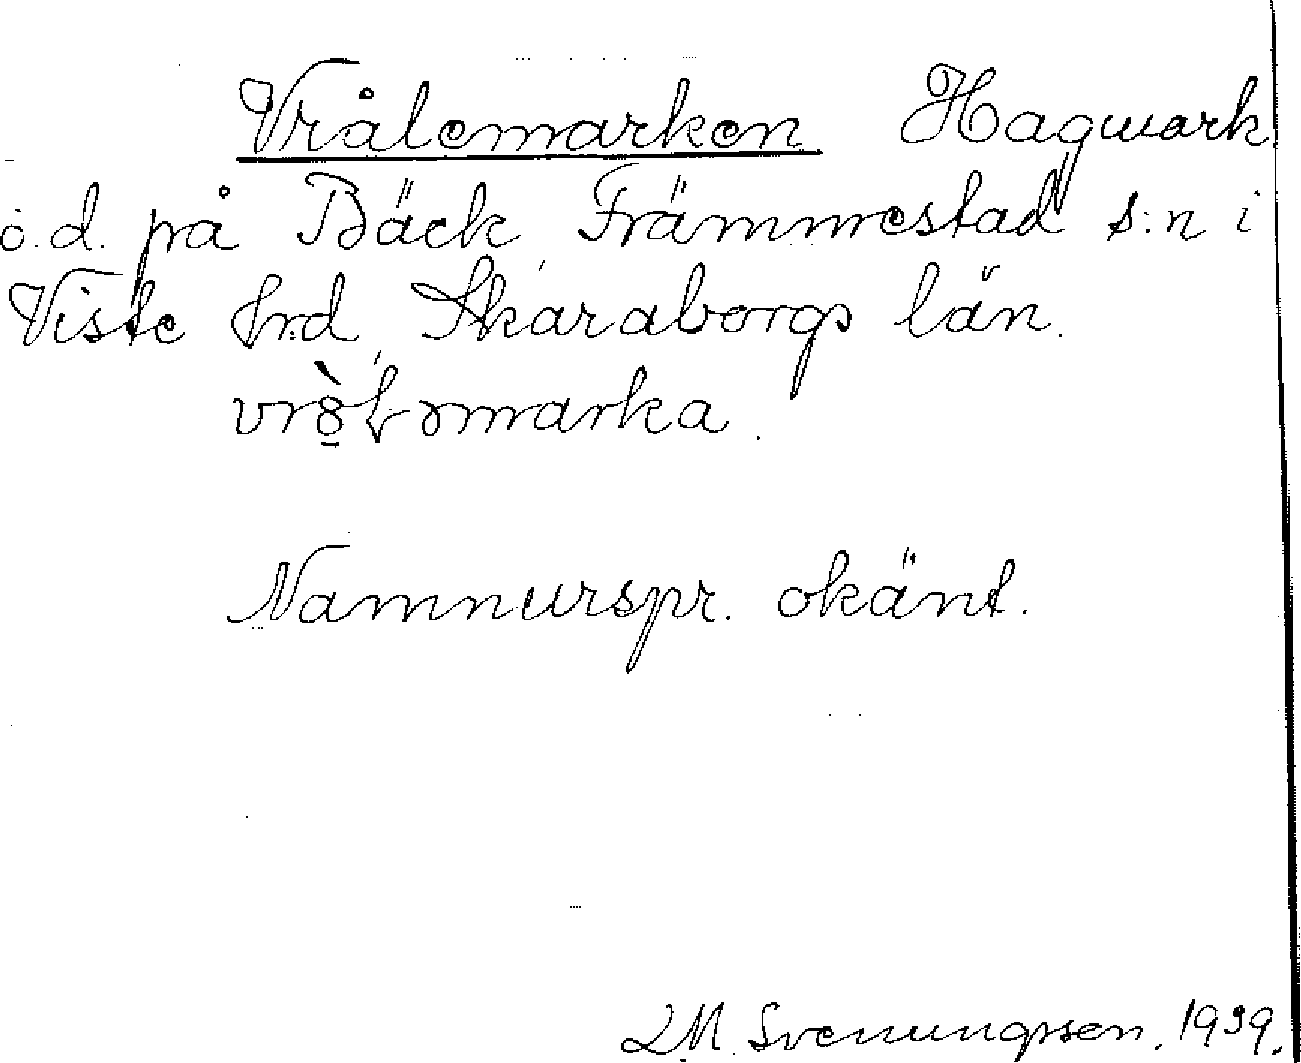 Vrålemarken Hagmark
ö.d. på Bäck, Främmestad s:n i
Viste hrd, Skaraborgs län.
vrò̱ɫəmarka.
Namnurspr. okänt.
L.M. Svenungsson. 1939.